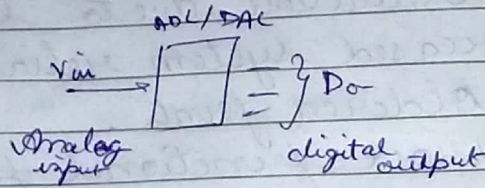 ADC/DAC
Vin
Do
Analog
input
digital
output